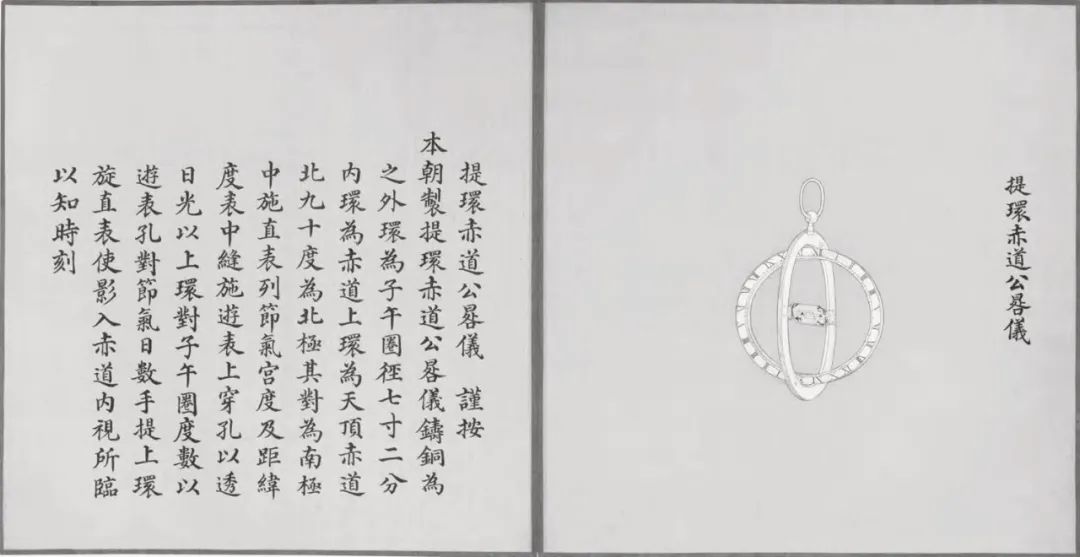 提環赤道公晷儀
提環赤道公晷儀 謹按
本朝製提環赤道公晷儀鑄銅為
之外環為子午圈徑七寸二分
內環為赤道上環為天頂赤道
北九十度為北極其對為南極
中施直表列節氣宮度及距緯
度表中縫施遊表上穿孔以透
日光以上環對子午圈度數以
遊表孔對節氣日數手提上環
旋直表使影入赤道內視所臨
以知時刻